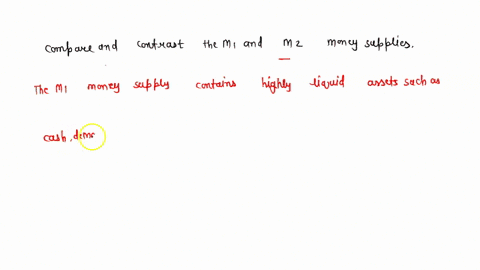 compare and contrast the M1 and M2 money supplies.
The M1 money supply contains highly liquid assets such as
cash, dema